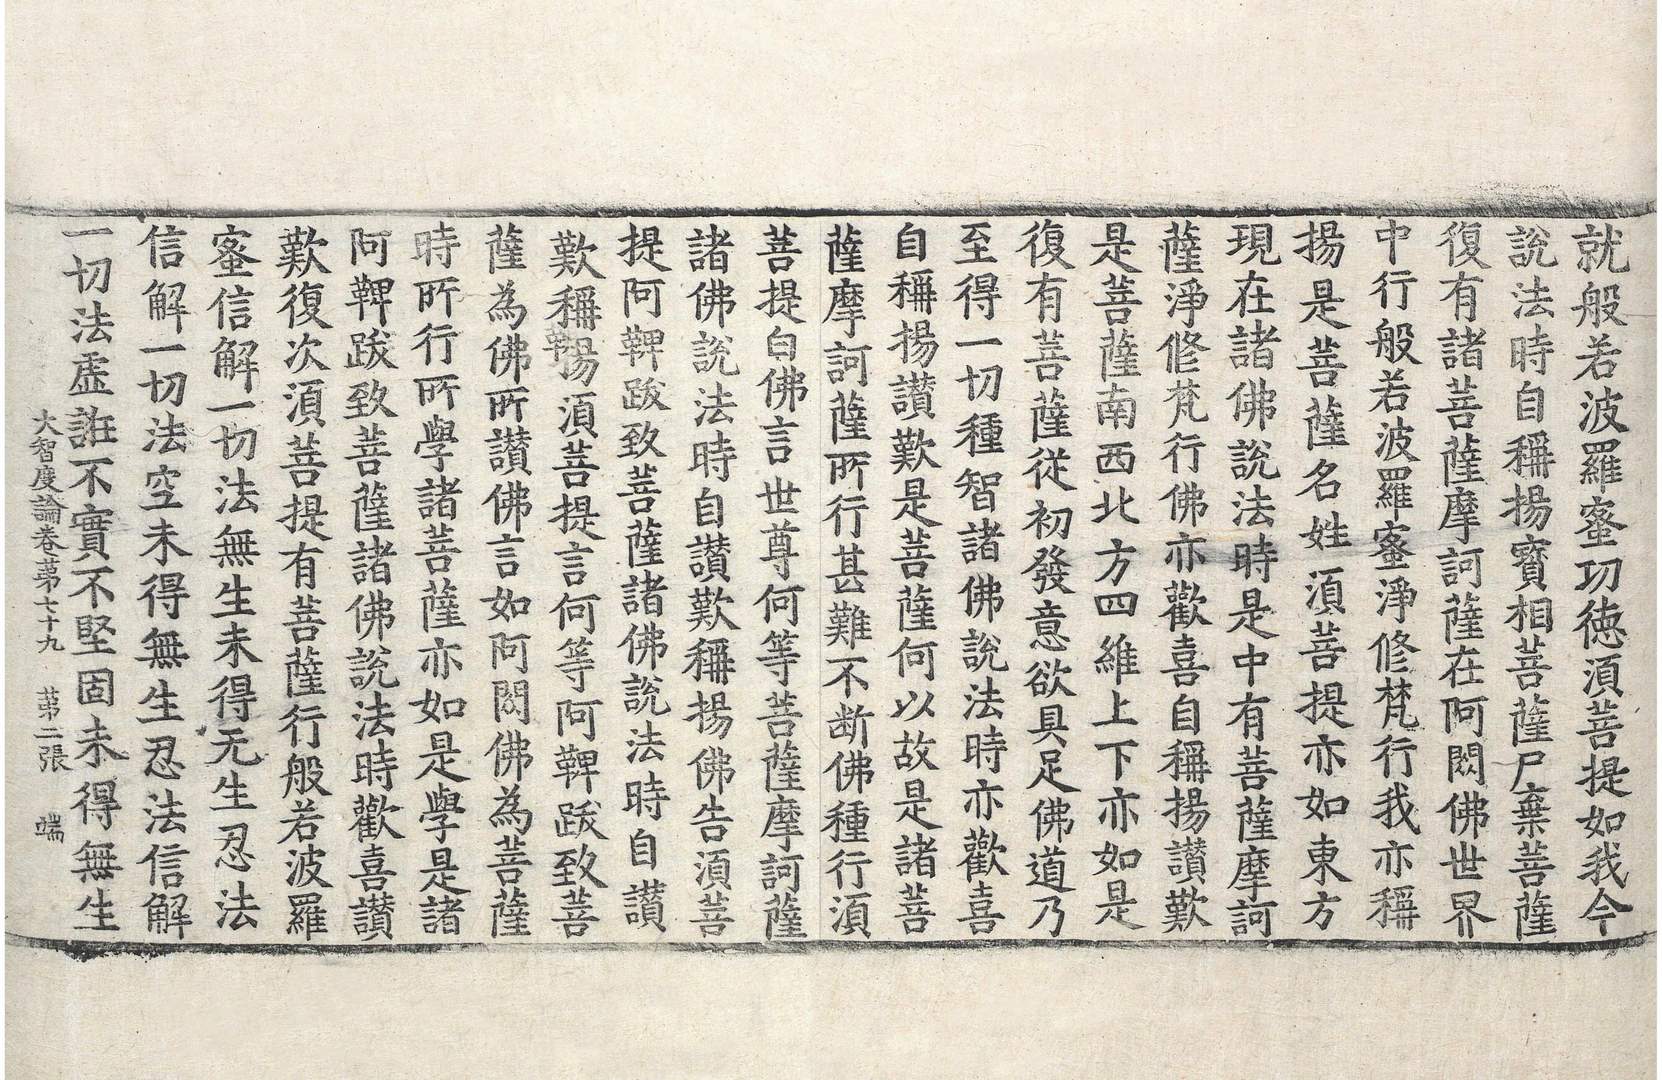 就般若波羅蜜功德湏菩提如我今
說法時自稱揚寶相菩薩尸棄菩薩
復有諸菩薩摩訶薩在阿閦佛世界
中行般若波羅蜜淨修梵行我亦稱
揚是菩薩名姓湏菩提亦如東方
現在諸佛說法時是中有菩薩摩訶
薩淨修梵行佛亦歡喜自稱揚讃歎
是菩薩南西北方四維上下亦如是
復有菩薩從初發意欲具足佛道乃
至得一切種智諸佛說法時亦歡喜
自稱揚讃歎是菩薩何以故是諸菩
薩摩訶薩所行甚難不断佛種行湏
菩提白佛言世尊何等菩薩摩訶薩
諸佛說法時自讃歎稱揚佛告湏菩
提阿鞞跋致菩薩諸佛說法時自讃
歎稱揚湏菩提言何等阿鞞跋致菩
薩為佛所讃佛言如阿閦佛為菩薩
時所行所學諸菩薩亦如是學是諸
阿鞞跋致菩薩諸佛說法時歡喜讃
歎復次湏菩提有菩薩行般若波羅
蜜信解一切法無生未得无生忍法
信解一切法空未得無生忍法信解
一切法虛誑不實不堅固未得無生
大智度論卷苐七十九 苐二張 端